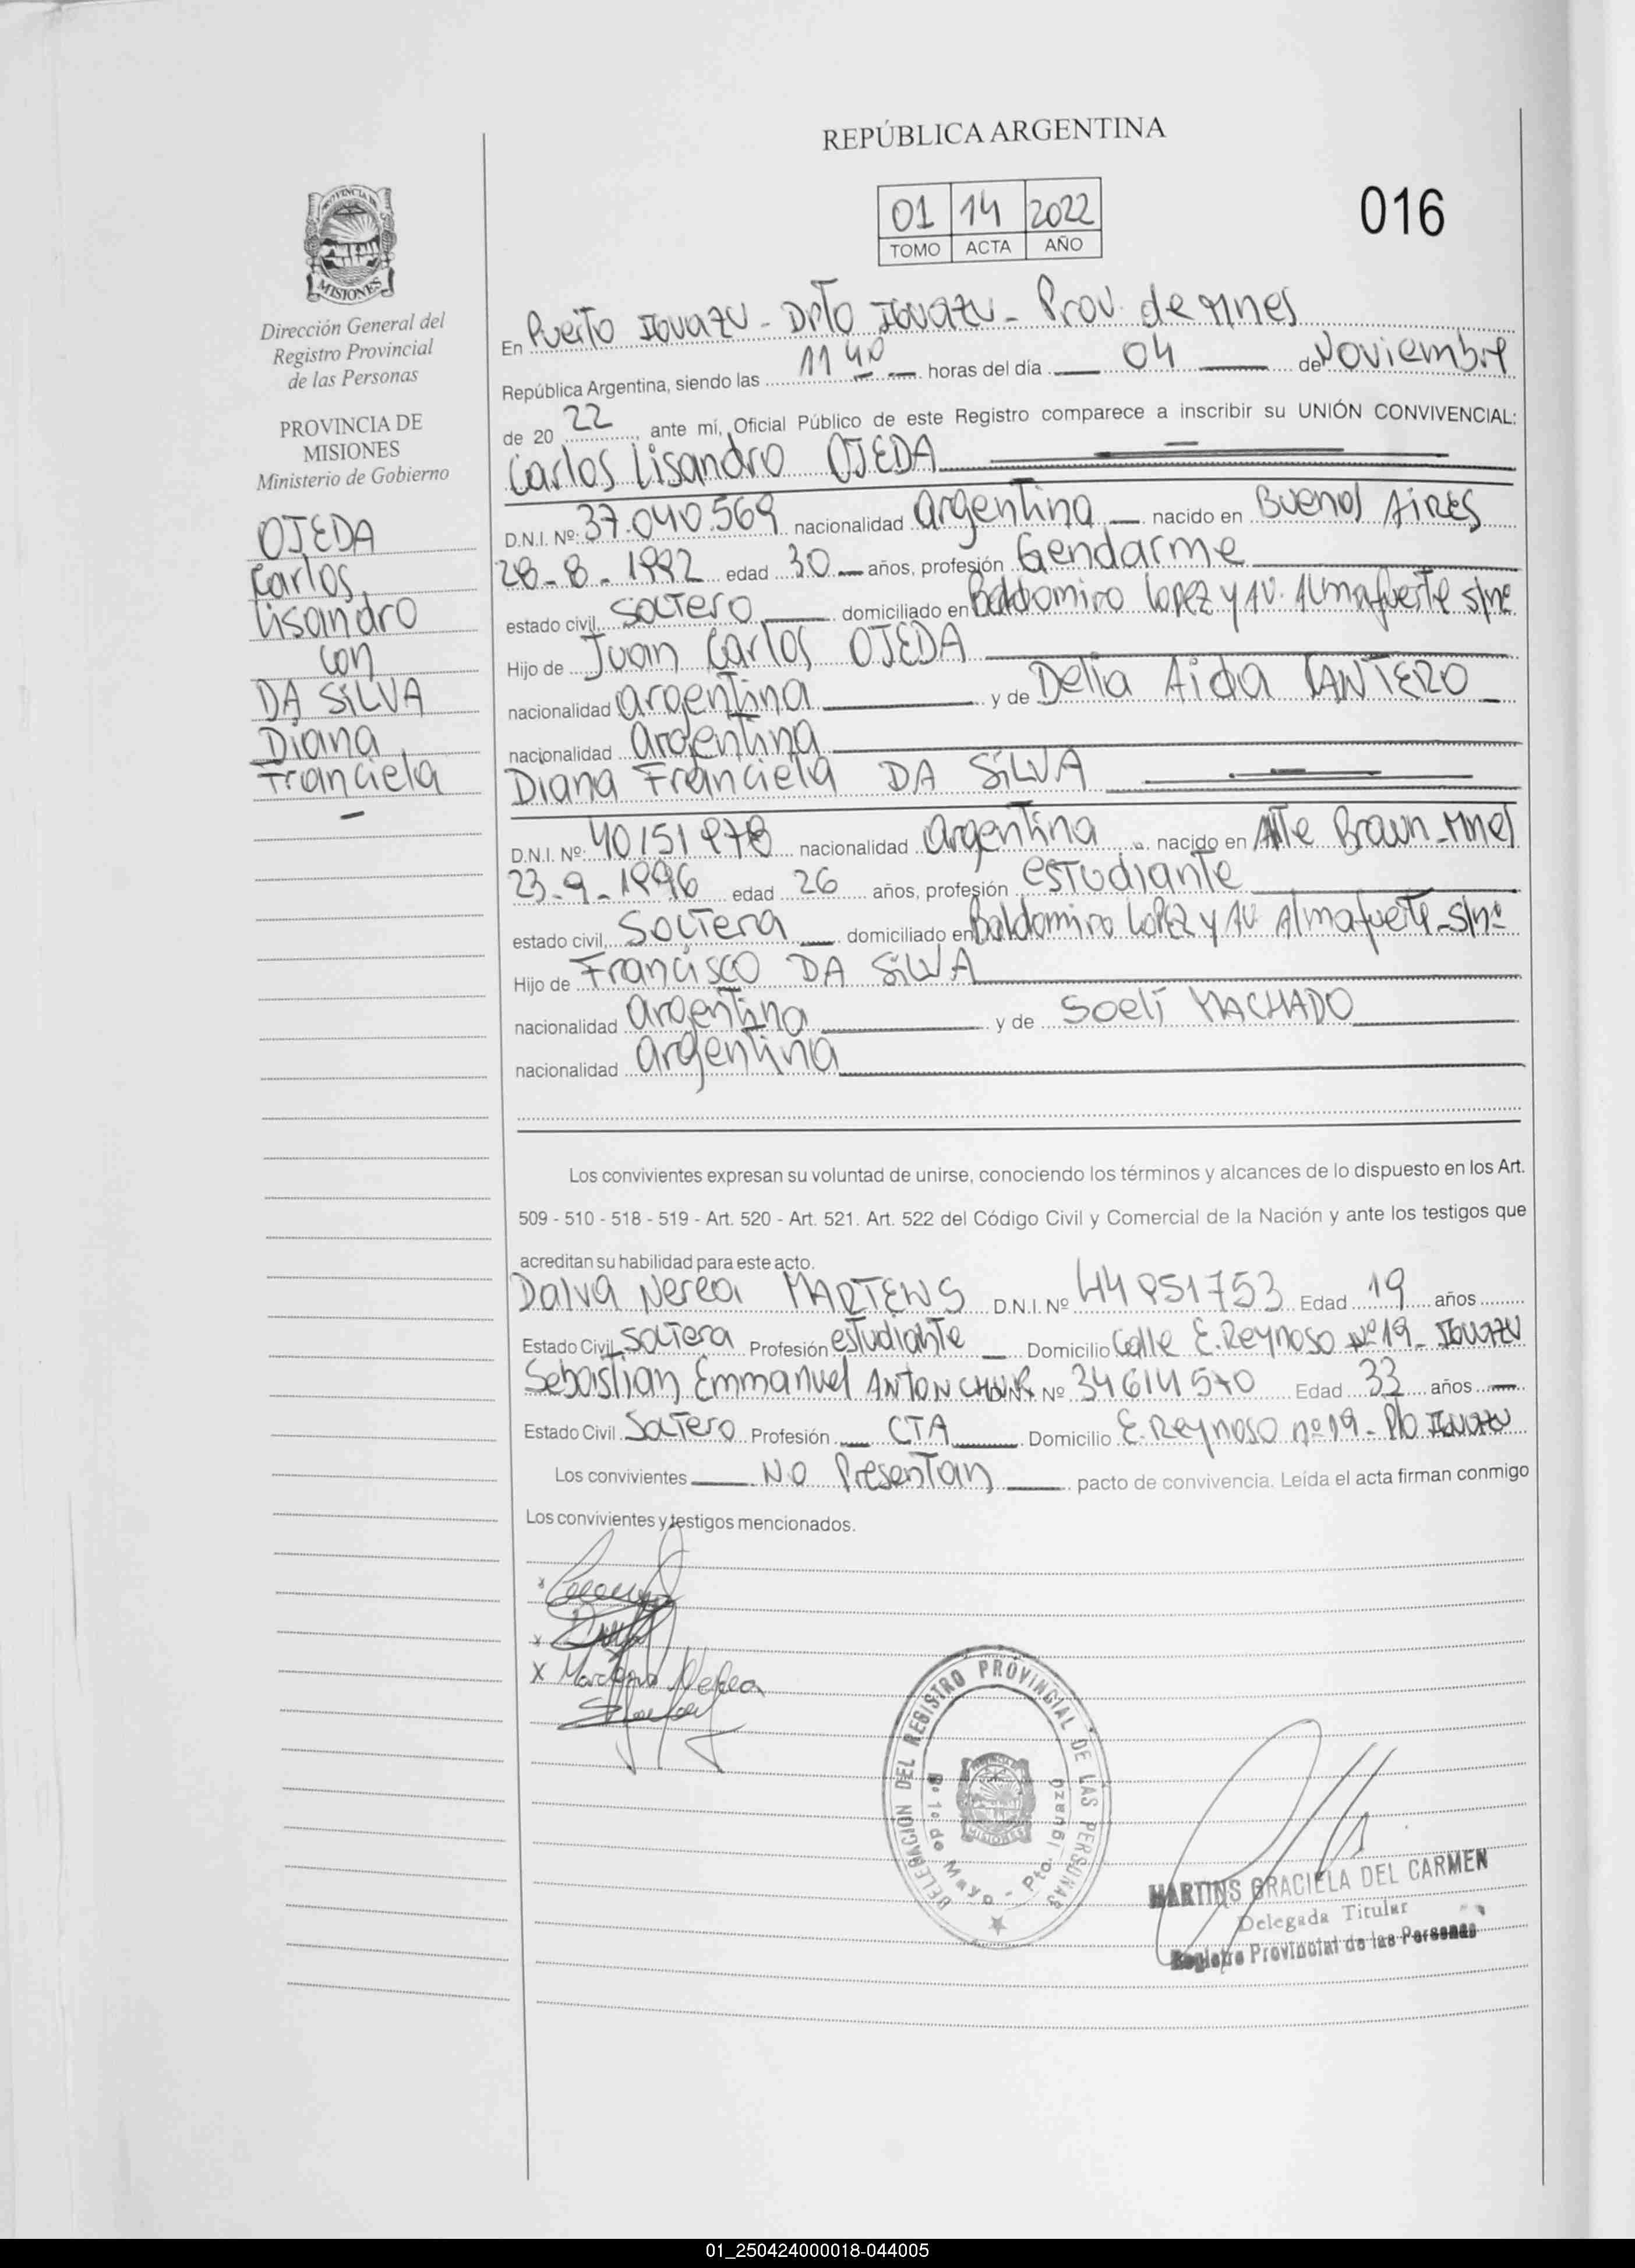 REPÚBLICA ARGENTINA
01 14 2022
TOMO ACTA AÑO
016
PROVINCIA DE
MISIONES
Dirección General del
Registro Provincial
de las Personas
PROVINCIA DE
MISIONES
Ministerio de Gobierno
OJEDA
Carlos
Lisandro
con
DA SILVA
Diana
Franciela
En Puerto Iguazu - Dpto Iguazu - Prov. de Mnes
República Argentina, siendo las 11 40 horas del día 04 de Noviembre
de 20 22, ante mí, Oficial Público de este Registro comparece a inscribir su UNIÓN CONVIVENCIAL:
Carlos Lisandro OJEDA
D.N.I. Nº: 37.040.569 nacionalidad argentina nacido en Buenos Aires
28-8-1992 edad 30 años, profesión Gendarme
estado civil Soltero domiciliado en Baldomiro Lopez y AV. Almafuerte s/nº
Hijo de Juan Carlos OJEDA
nacionalidad argentina y de Delia Aida
nacionalidad argentina
Diana Franciela DA SILVA
D.N.I. Nº: 40151978 nacionalidad Argentina nacido en Alte Brown - Mnes
23-9-1996 edad 26 años, profesión estudiante
estado civil Soltera domiciliado en Baldomiro Lopez y AV Almafuerte - S/nº
Hijo de Francisco DA SILVA
nacionalidad argentina y de Soeli MACHADO
nacionalidad argentina
Los convivientes expresan su voluntad de unirse, conociendo los términos y alcances de lo dispuesto en los Art.
509 - 510 - 518 - 519 - Art. 520 - Art. 521. Art. 522 del Código Civil y Comercial de la Nación y ante los testigos que
acreditan su habilidad para este acto.
Dalva Nerea MARTENS D.N.I. Nº 44951753 Edad 19 años
Estado Civil Soltera Profesión estudiante Domicilio Calle E. Reynoso Nº 19 - Iguazu
Sebastian Emmanuel D.N.I. Nº 34614570 Edad 33 años
Estado Civil Soltero Profesión CTA Domicilio E. Reynoso nº 19 - Pto Iguazu
Los convivientes No Presentan pacto de convivencia. Leída el acta firman conmigo
Los convivientes y testigos mencionados.
x
x
X Nerea
DELEGACION DEL REGISTRO PROVINCIAL DE LAS PERSONAS
Bº 1º de Mayo - Pto. Iguazú
MISIONES
MARTINS GRACIELA DEL CARMEN
Delegada Titular
Registro Provincial de las Personas
01_250424000018-044005